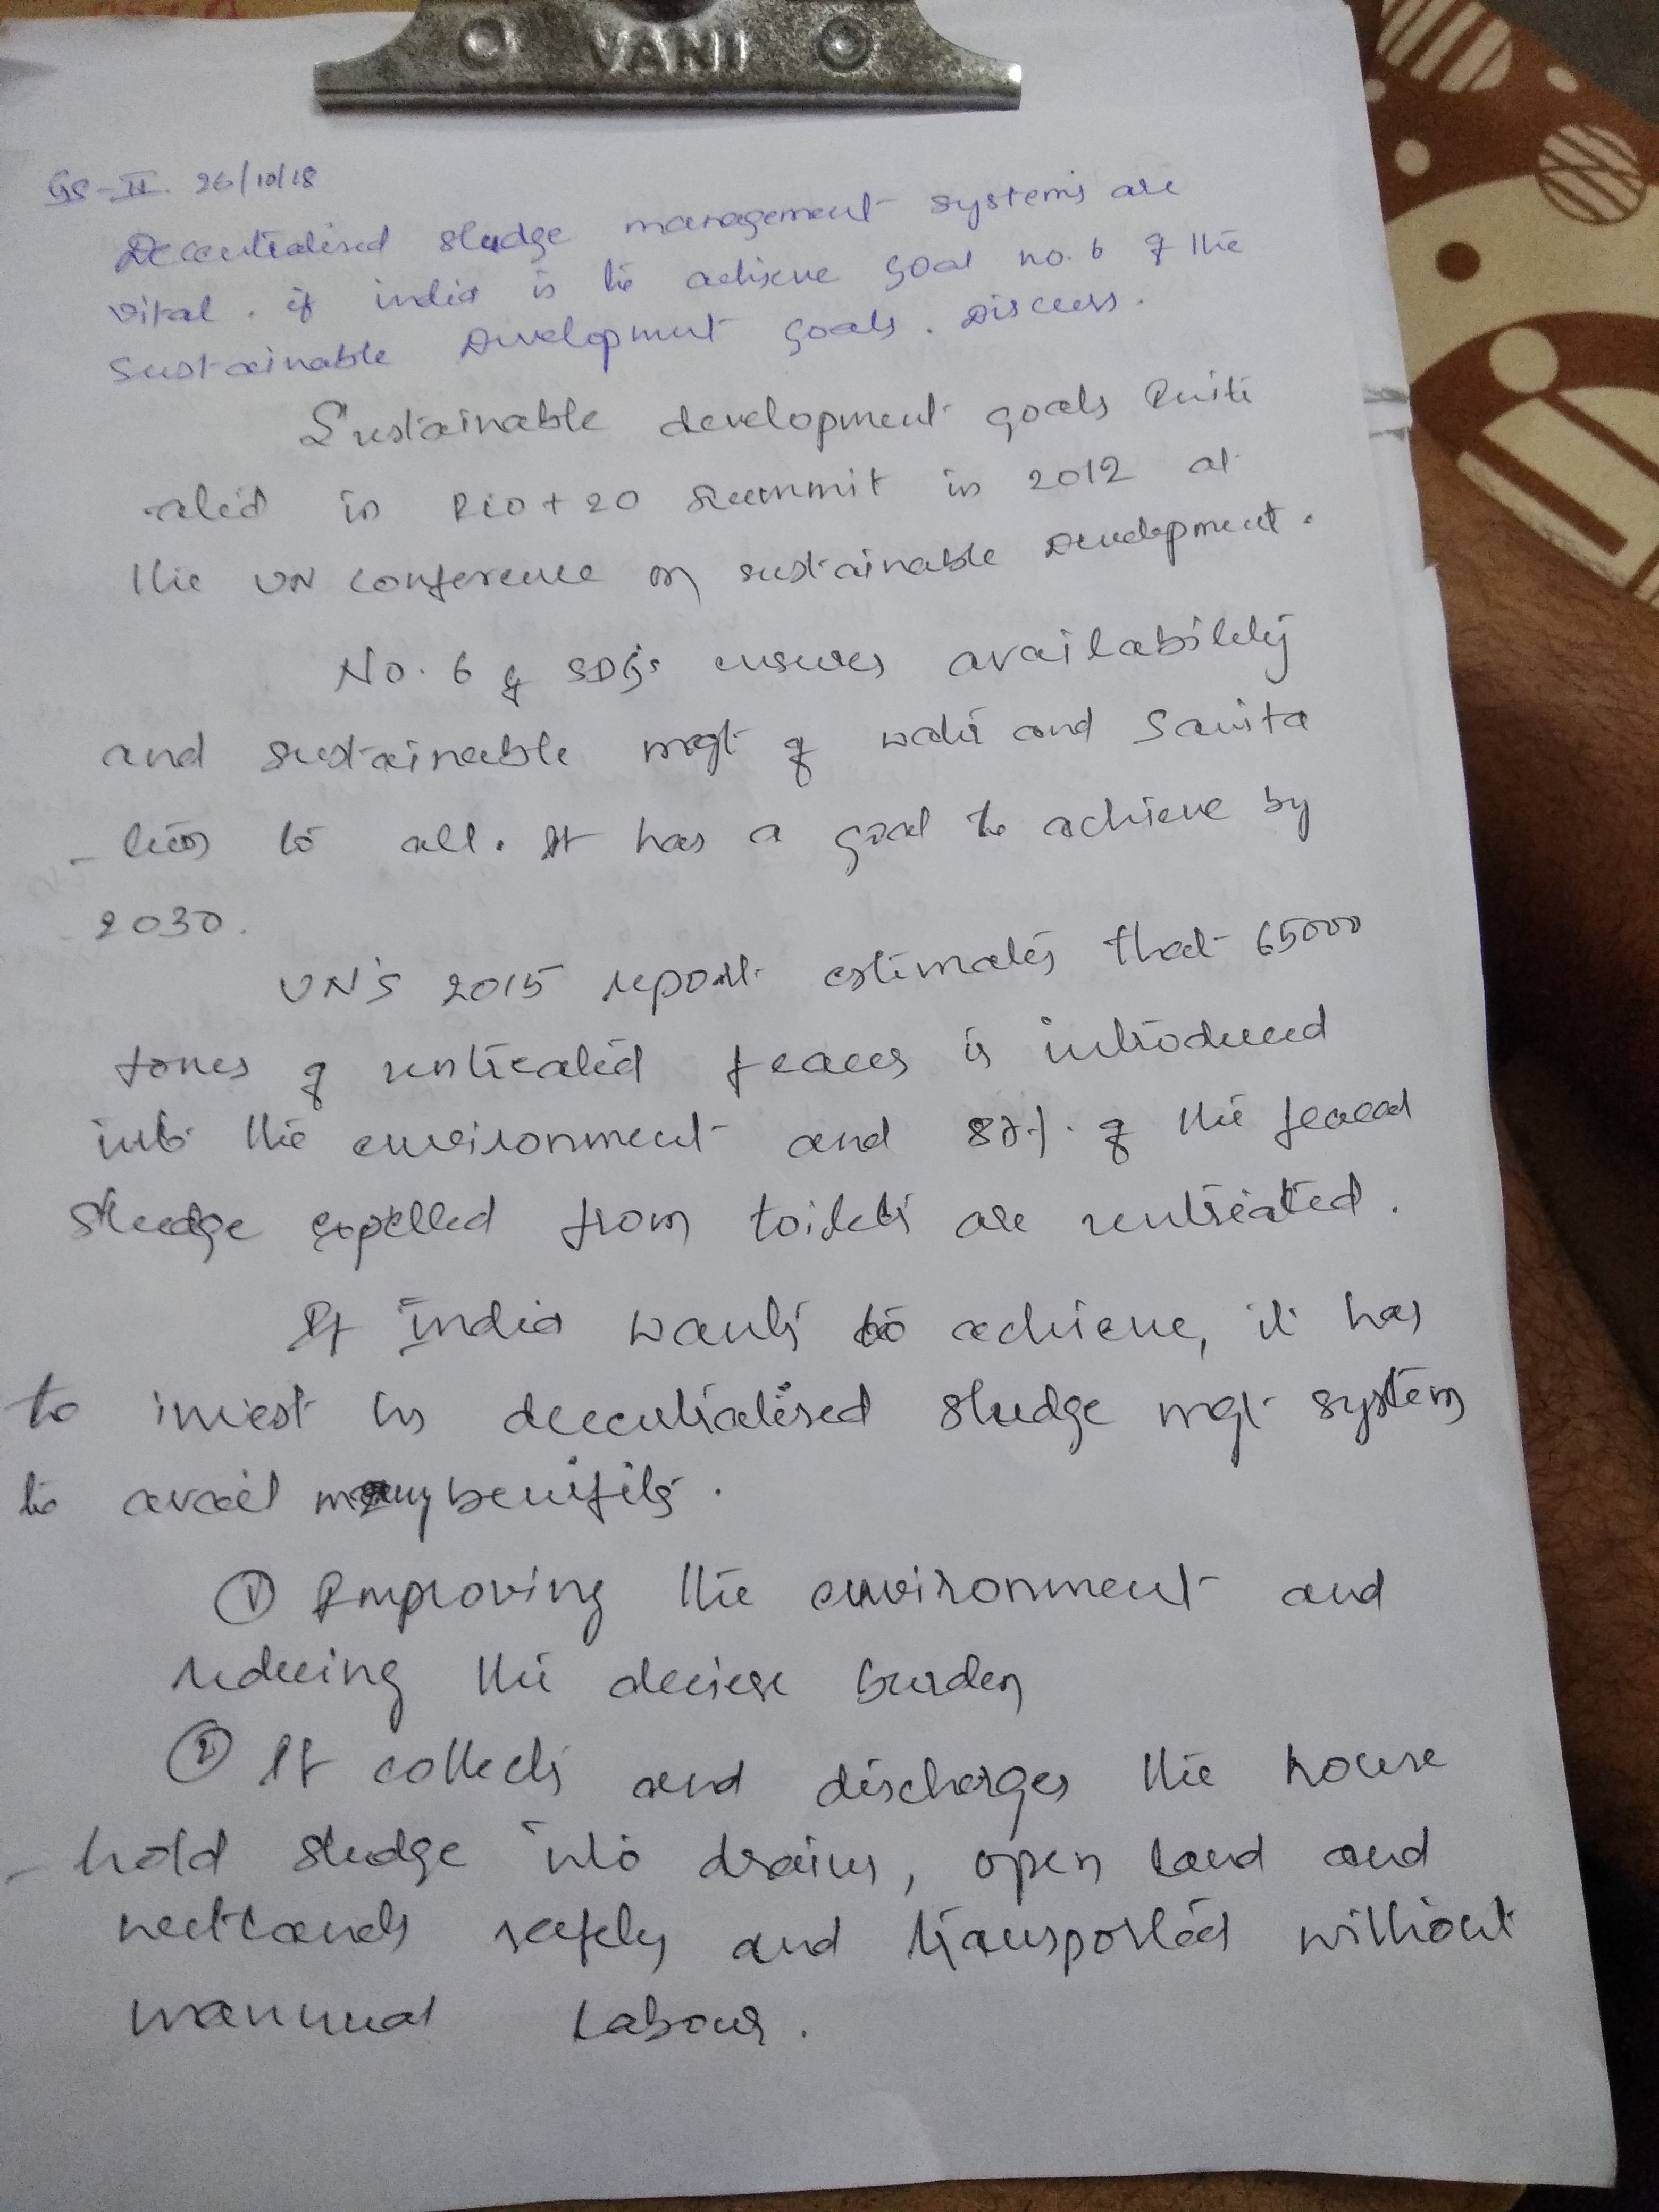 VANI
GS-II. 26/10/18
Decentralised sludge management systems are
vital. if india is to achieve goal no. 6 of the
Sustainable Development goals. Discuss.
Sustainable development goals Initi
-ated in Rio + 20 Summit in 2012 at
the UN conference on sustainable Development.
No. 6 of SDG's ensures availability
and sustainable mgt of water and Sanita
-tion to all. It has a goal to achieve by
2030.
UN'S 2015 report estimates that 65000
tones of untreated feaces is introduced
into the environment and of the feacal
Sludge expelled from toilets are untreated.
If India wants to achieve, it has
to invest in decentralised sludge mgt system
to avail many benifits.
① Improving the environment and
reducing the burden
② It collects and discharges the house
-hold sludge into drains, open land and
wetlands safely and transported without
mannual labour.